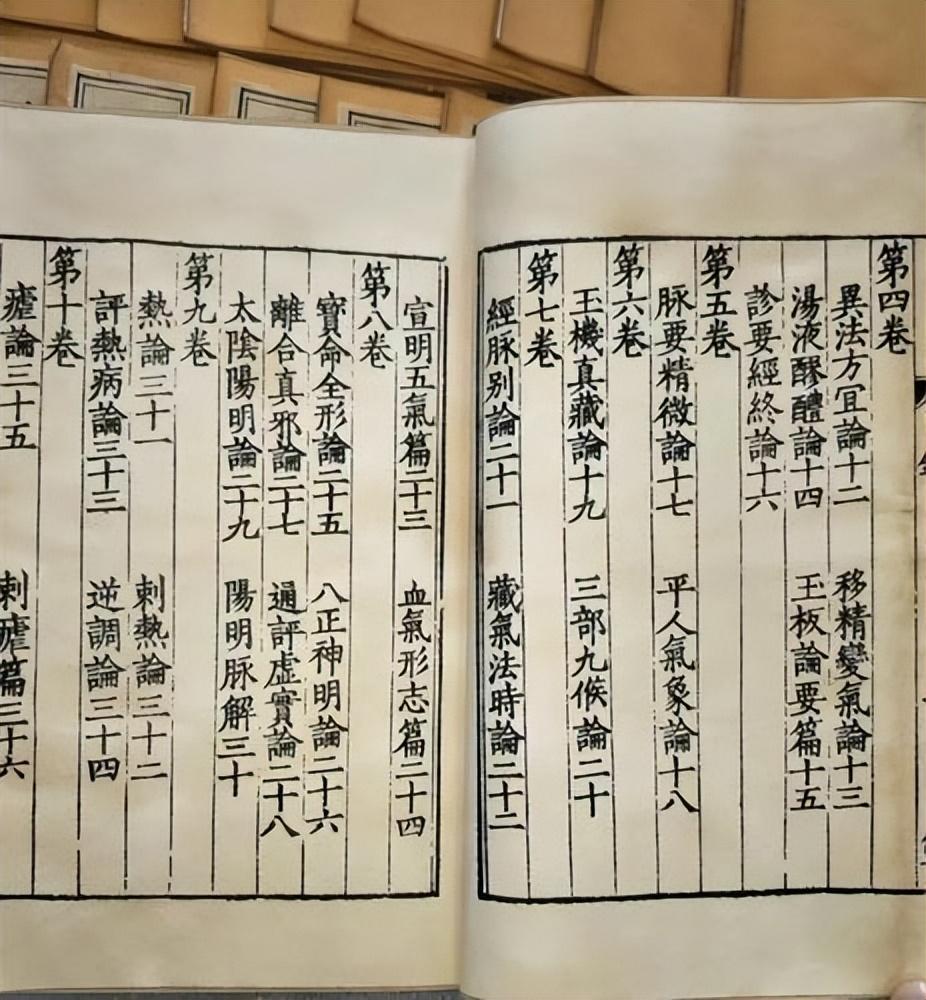 第四卷
異法方宜論十二 移精變氣論十三
湯液醪醴論十四 玉板論要篇十五
診要經終論十六
第五卷
脉要精微論十七 平人氣象論十八
第六卷
玉機真藏論十九 三部九候論二十
第七卷
經脉别論二十一 藏氣法時論二十二
宣明五氣篇二十三 血氣形志篇二十四
第八卷
寶命全形論二十五 八正神明論二十六
離合真邪論二十七 通評虛實論二十八
太陰陽明論二十九 陽明脉解三十
第九卷
熱論三十一 刺熱論三十二
評熱病論三十三 逆調論三十四
第十卷
瘧論三十五 刺瘧篇三十六